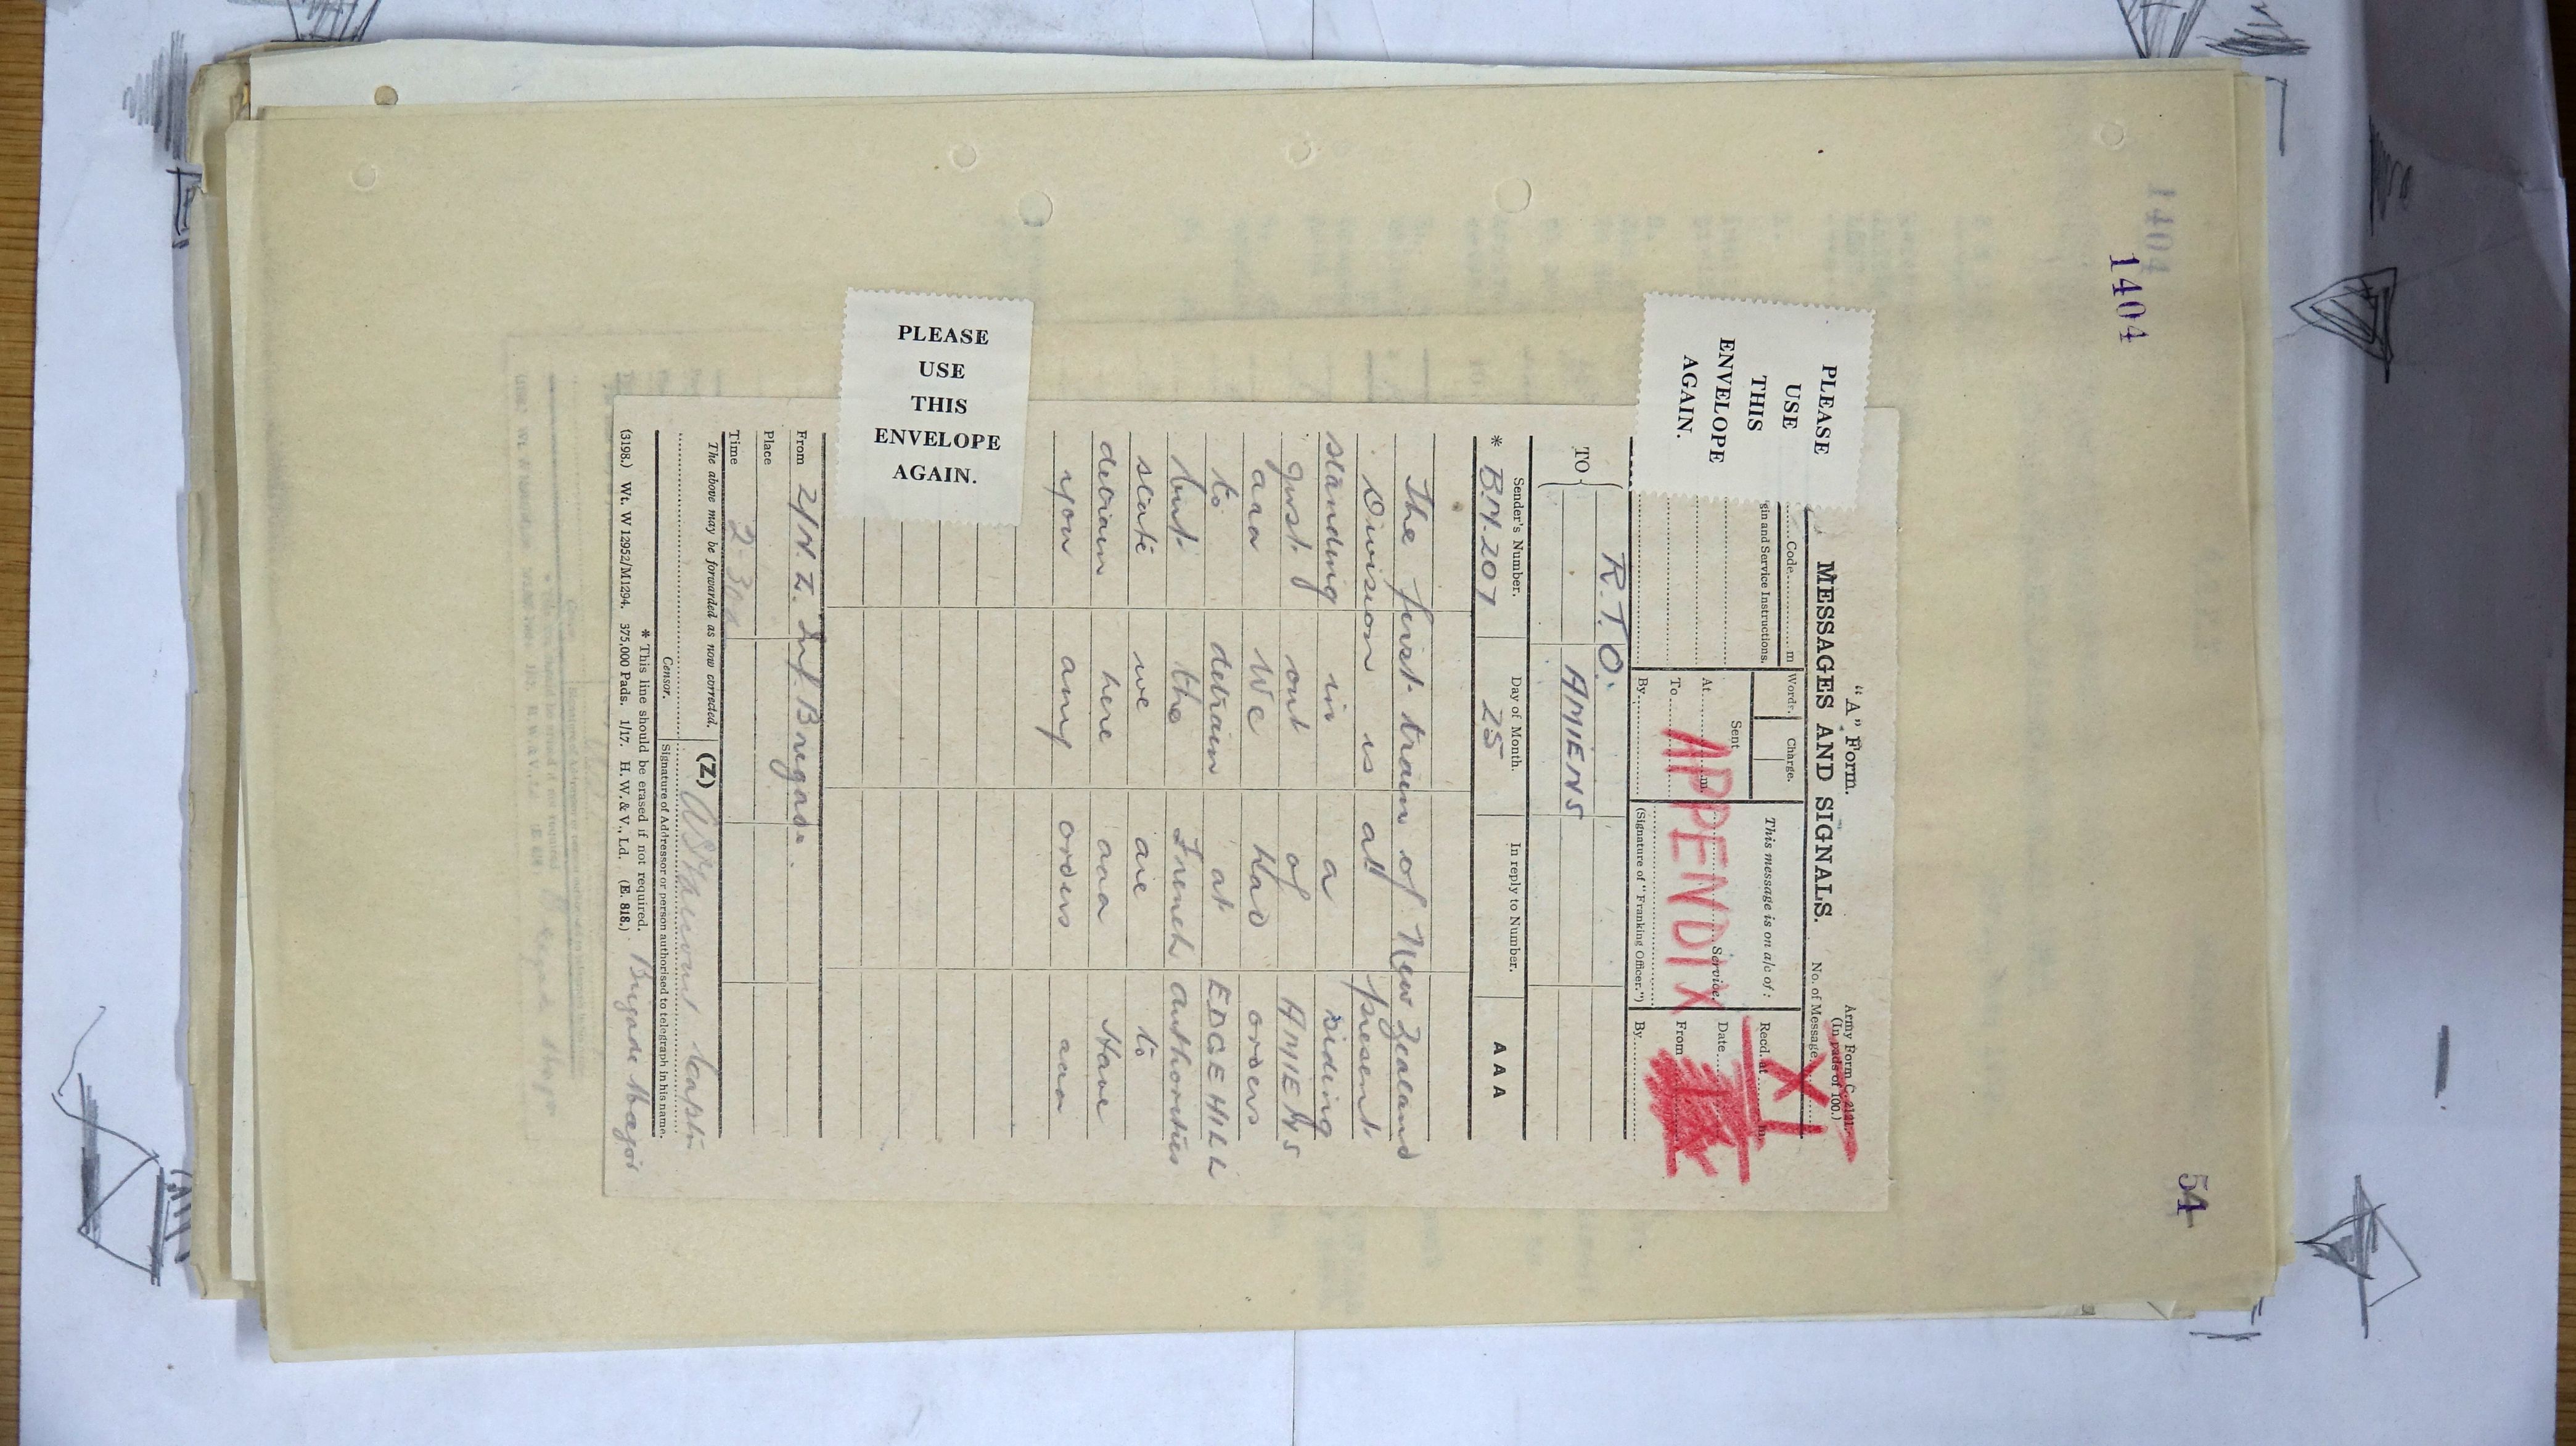 1404
1404
54
PLEASE
USE
THIS
ENVELOPE
AGAIN.
"A" Form.
Army Form C. 2121.
(In pads of 100.)
MESSAGES AND SIGNALS.
No. of Message
Code m
Words. Charge.
This message is on a/c of :
Recd. at m.
XI
gin and Service Instructions.
Sent
Service.
Date
At m.
APPENDIX
To
From
By
(Signature of "Franking Officer.")
By
TO
R.T.O.
AMIENS
Sender's Number. Day of Month. In reply to Number.
* B.M. 207 25 AAA
The first train of New Zealand
Division is at present
standing in a siding
just out of AMIENS
aaa We had orders
to detrain at EDGEHILL
but the French authorities
state we are to
detrain here aaa Have
you any orders aaa
PLEASE
USE
THIS
ENVELOPE
AGAIN.
From 2/N.Z. Inf. Brigade.
Place
Time 2-30
The above may be forwarded as now corrected. (Z)
Captn
Censor. Signature of Addressor or person authorised to telegraph in his name.
* This line should be erased if not required. Brigade Major
(3198.) Wt. W 12952/M1294. 375,000 Pads. 1/17. H. W. & V., Ld. (E. 818.)